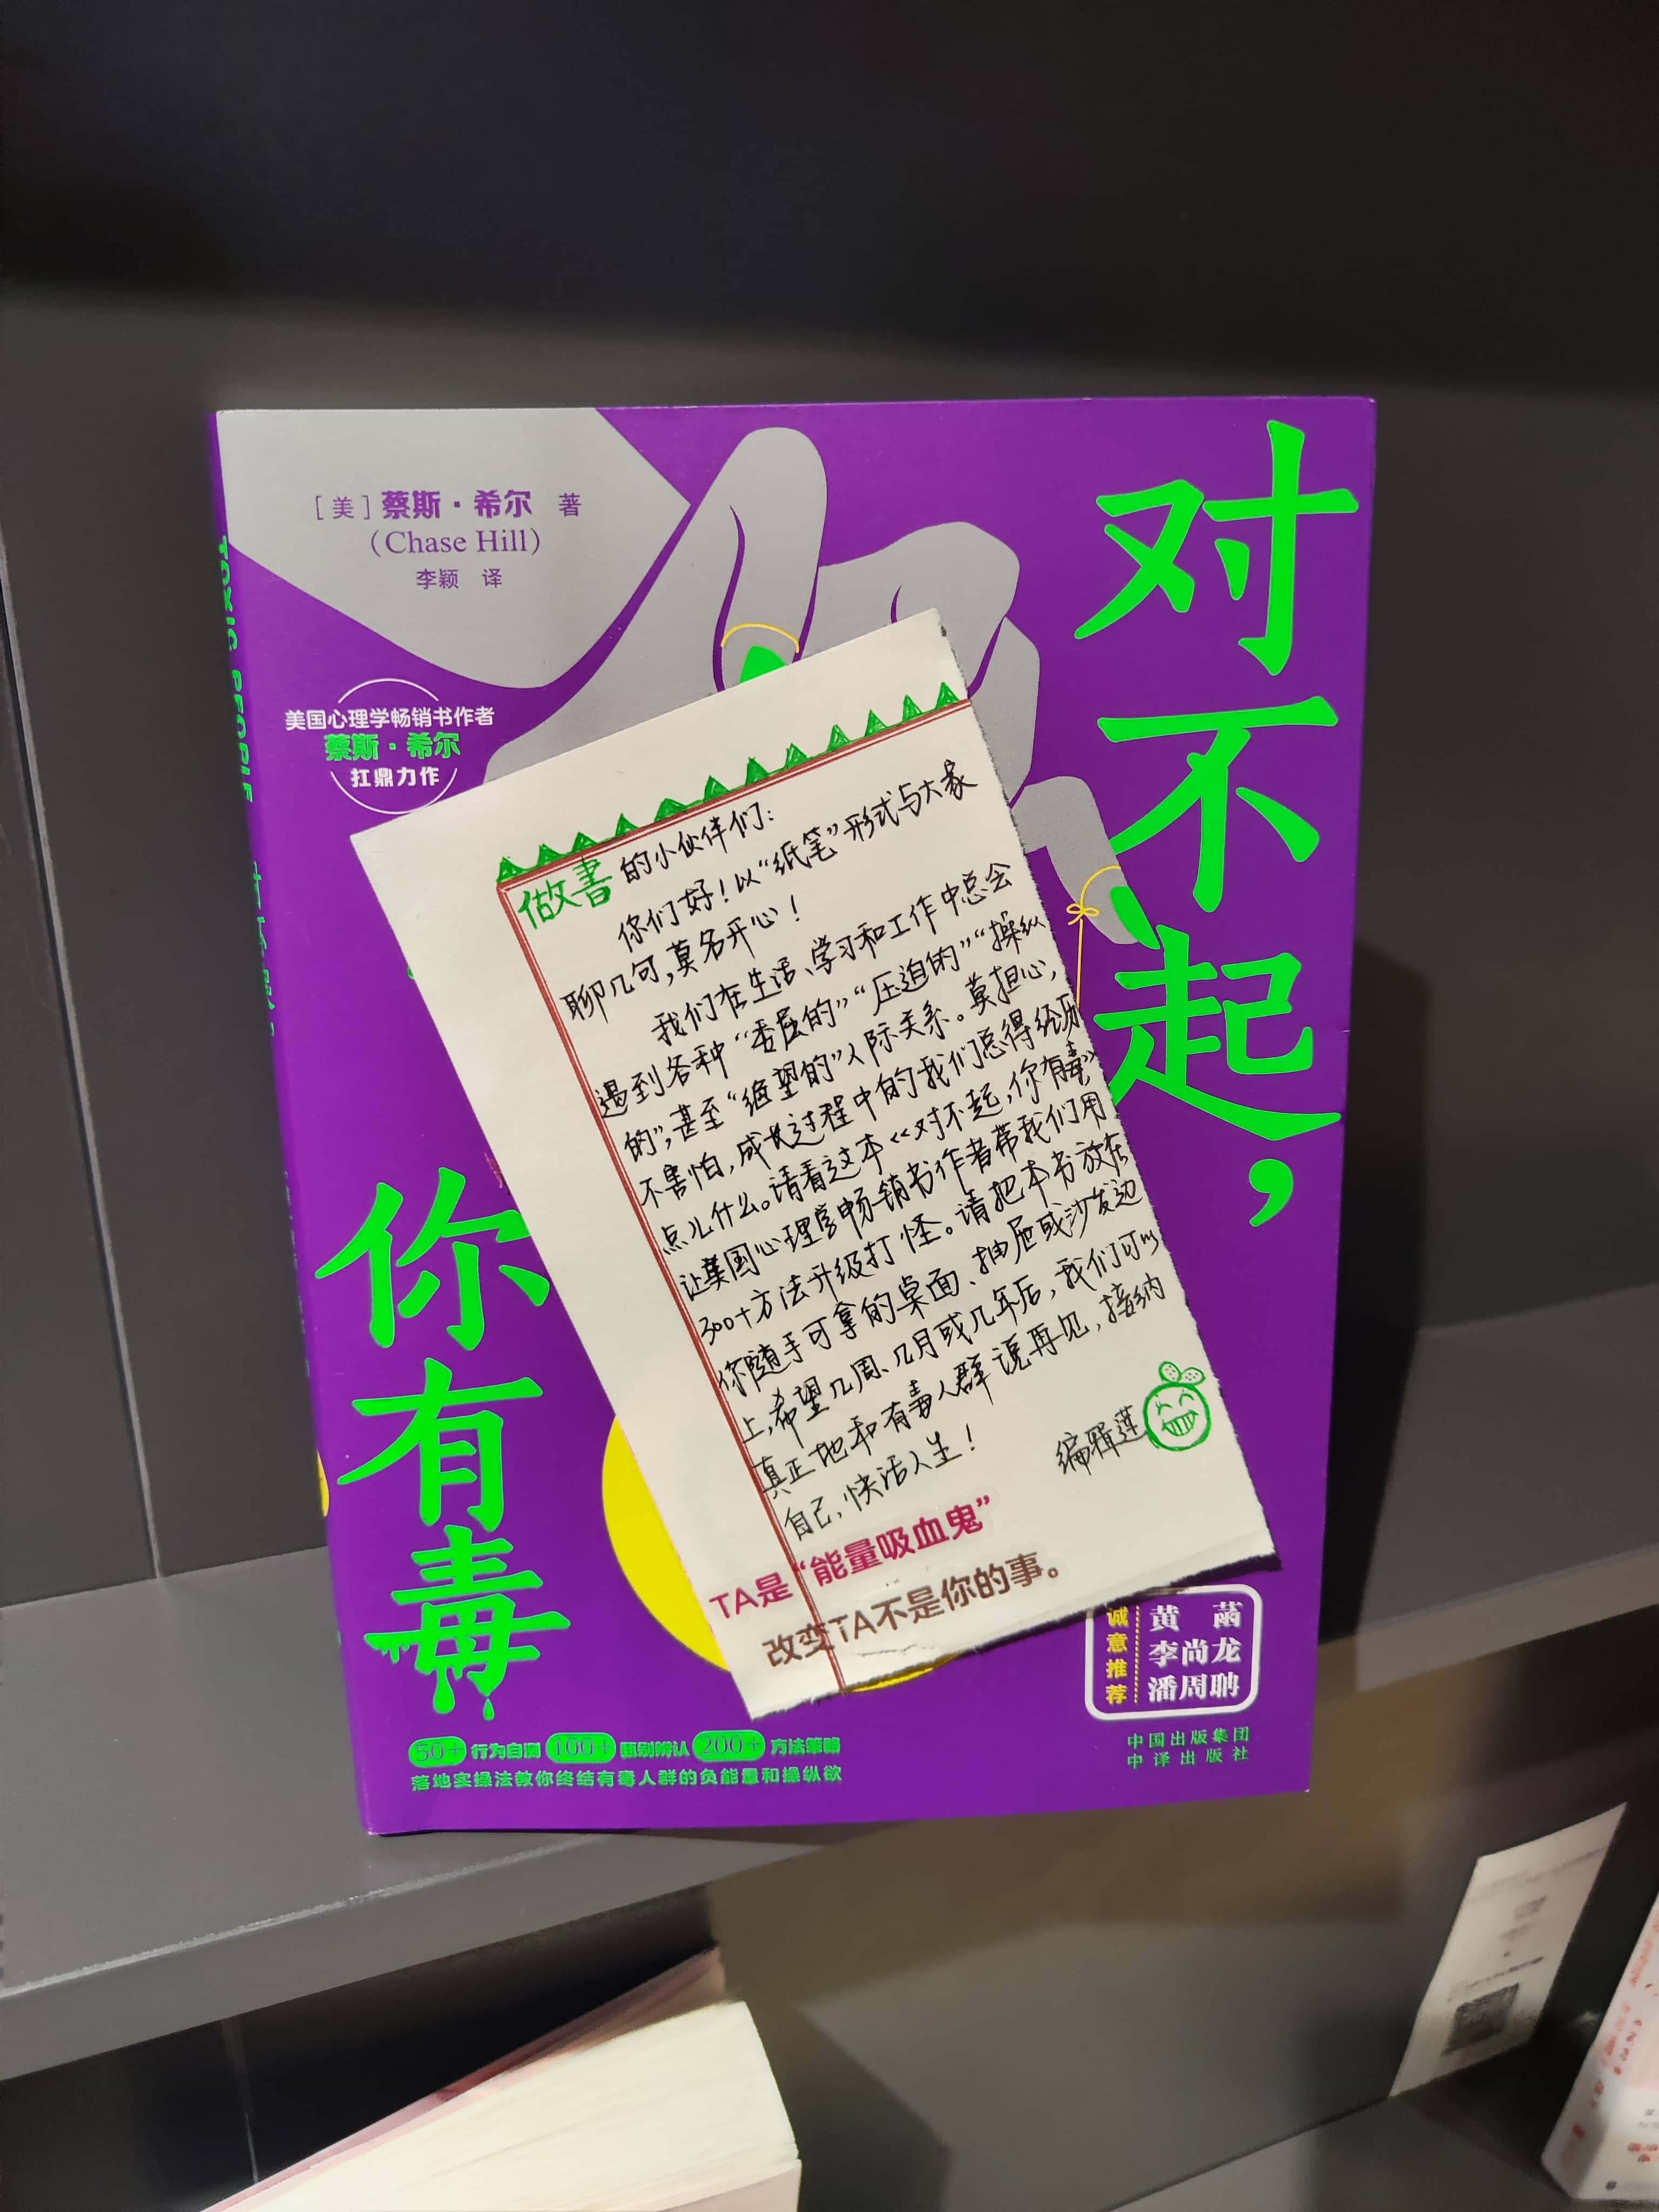 [美] 蔡斯·希尔 著
(Chase Hill)
李颖 译
美国心理学畅销书作者
蔡斯·希尔
扛鼎力作
对不起,
你有毒
TOXIC PEOPLE
做書的小伙伴们:
你们好!以“纸笔”形式与大家
聊几句,莫名开心!
我们在生活、学习和工作中总会
遇到各种“委屈的”“压迫的”“操纵
的”,甚至“绝望的”人际关系。莫担心,
不害怕,成长过程中的我们总得经历
点儿什么。请看这本《对不起,你有毒》
让美国心理学畅销书作者带我们用
300+方法升级打怪。请把本书放在
你随手可拿的桌面、抽屉或沙发边
上,希望几周、几月或几年后,我们可以
真正地和有毒人群说再见,接纳
自己,快活人生!
编辑莲
TA是“能量吸血鬼”
改变TA不是你的事。
诚意推荐
黄菡
李尚龙
潘周聃
50+ 行为自测 100+ 甄别辨认 200+ 方法策略
落地实操法教你终结有毒人群的负能量和操纵欲
中国出版集团
中译出版社